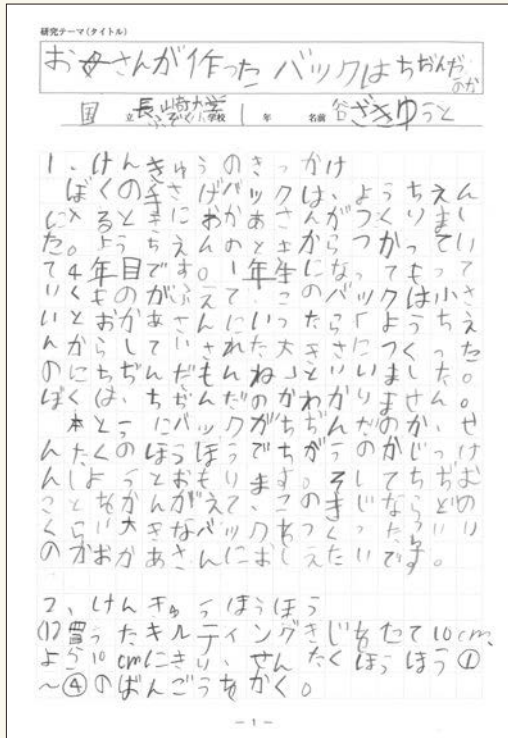 研究テーマ(タイトル)
お母さんが作ったバックはちぢんだのか
国立長崎大学ふぞく小学校 1年 名前 谷ざきゆうと
1、けんきゅうのきっかけ
ぼくの手さげバックは、ようちえん
に入るときにおかあさんがつくりまし
た。ようちえんのときからつかってい
て4年目です。1年生になってもって
いくものがふえて、このバックは小さ
いとおかあさんにいったら「ようちえ
んからしていされた大きさにつくった
のにちぢんだもんね」といいました。
ぼくは、ちぢんだのがわかりません。
本とうにバックがちぢんだのか、せ
んたくのほうほうでちがうのかじっけ
んしようとおもいます。そしてちぢむ
こともかんがえて、このきじならどの
くらい大きなバックをつくったらいい
のかおかあさんにおしえたいです。
2、けんきゅうほうほう
(1)買ったキルティングきじをたて10cm、
よこ10cmにきり、せんたくほうほう①
~④のばんごうをかく。
- 1 -